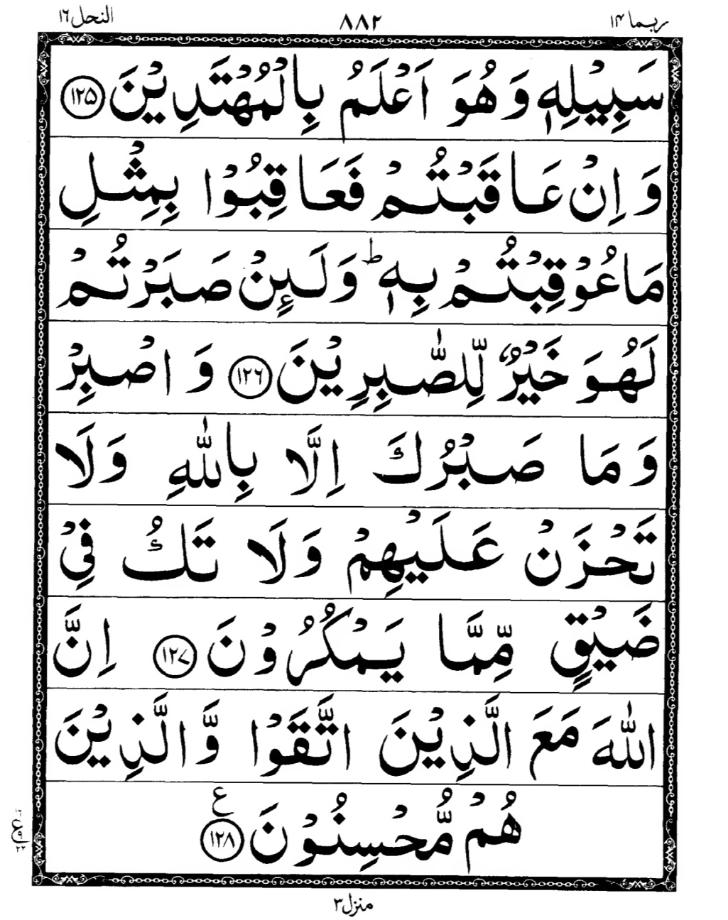 ربما ١٤ ٨٨٢ النحل ١٦
سَبِيْلِهٖ وَهُوَ اَعْلَمُ بِالْمُهْتَدِيْنَ ۝١٢٥
وَ اِنْ عَاقَبْتُمْ فَعَاقِبُوْا بِمِثْلِ
مَا عُوْقِبْتُمْ بِهٖ ؕ وَلَىِٕنْ صَبَرْتُمْ
لَهُوَ خَيْرٌ لِّلصّٰبِرِيْنَ ۝١٢٦ وَ اصْبِرْ
وَمَا صَبْرُكَ اِلَّا بِاللّٰهِ وَلَا
تَحْزَنْ عَلَيْهِمْ وَلَا تَكُ فِيْ
ضَيْقٍ مِّمَّا يَمْكُرُوْنَ ۝١٢٧ اِنَّ
اللّٰهَ مَعَ الَّذِيْنَ اتَّقَوْا وَّالَّذِيْنَ
هُمْ مُّحْسِنُوْنَ ۝١٢٨ ع
منزل ٣